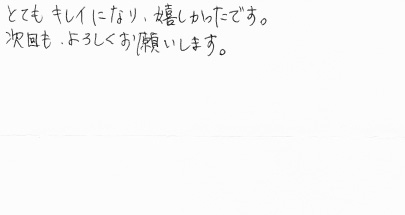 とてもキレイになり、嬉しかったです。
次回も、よろしくお願いします。